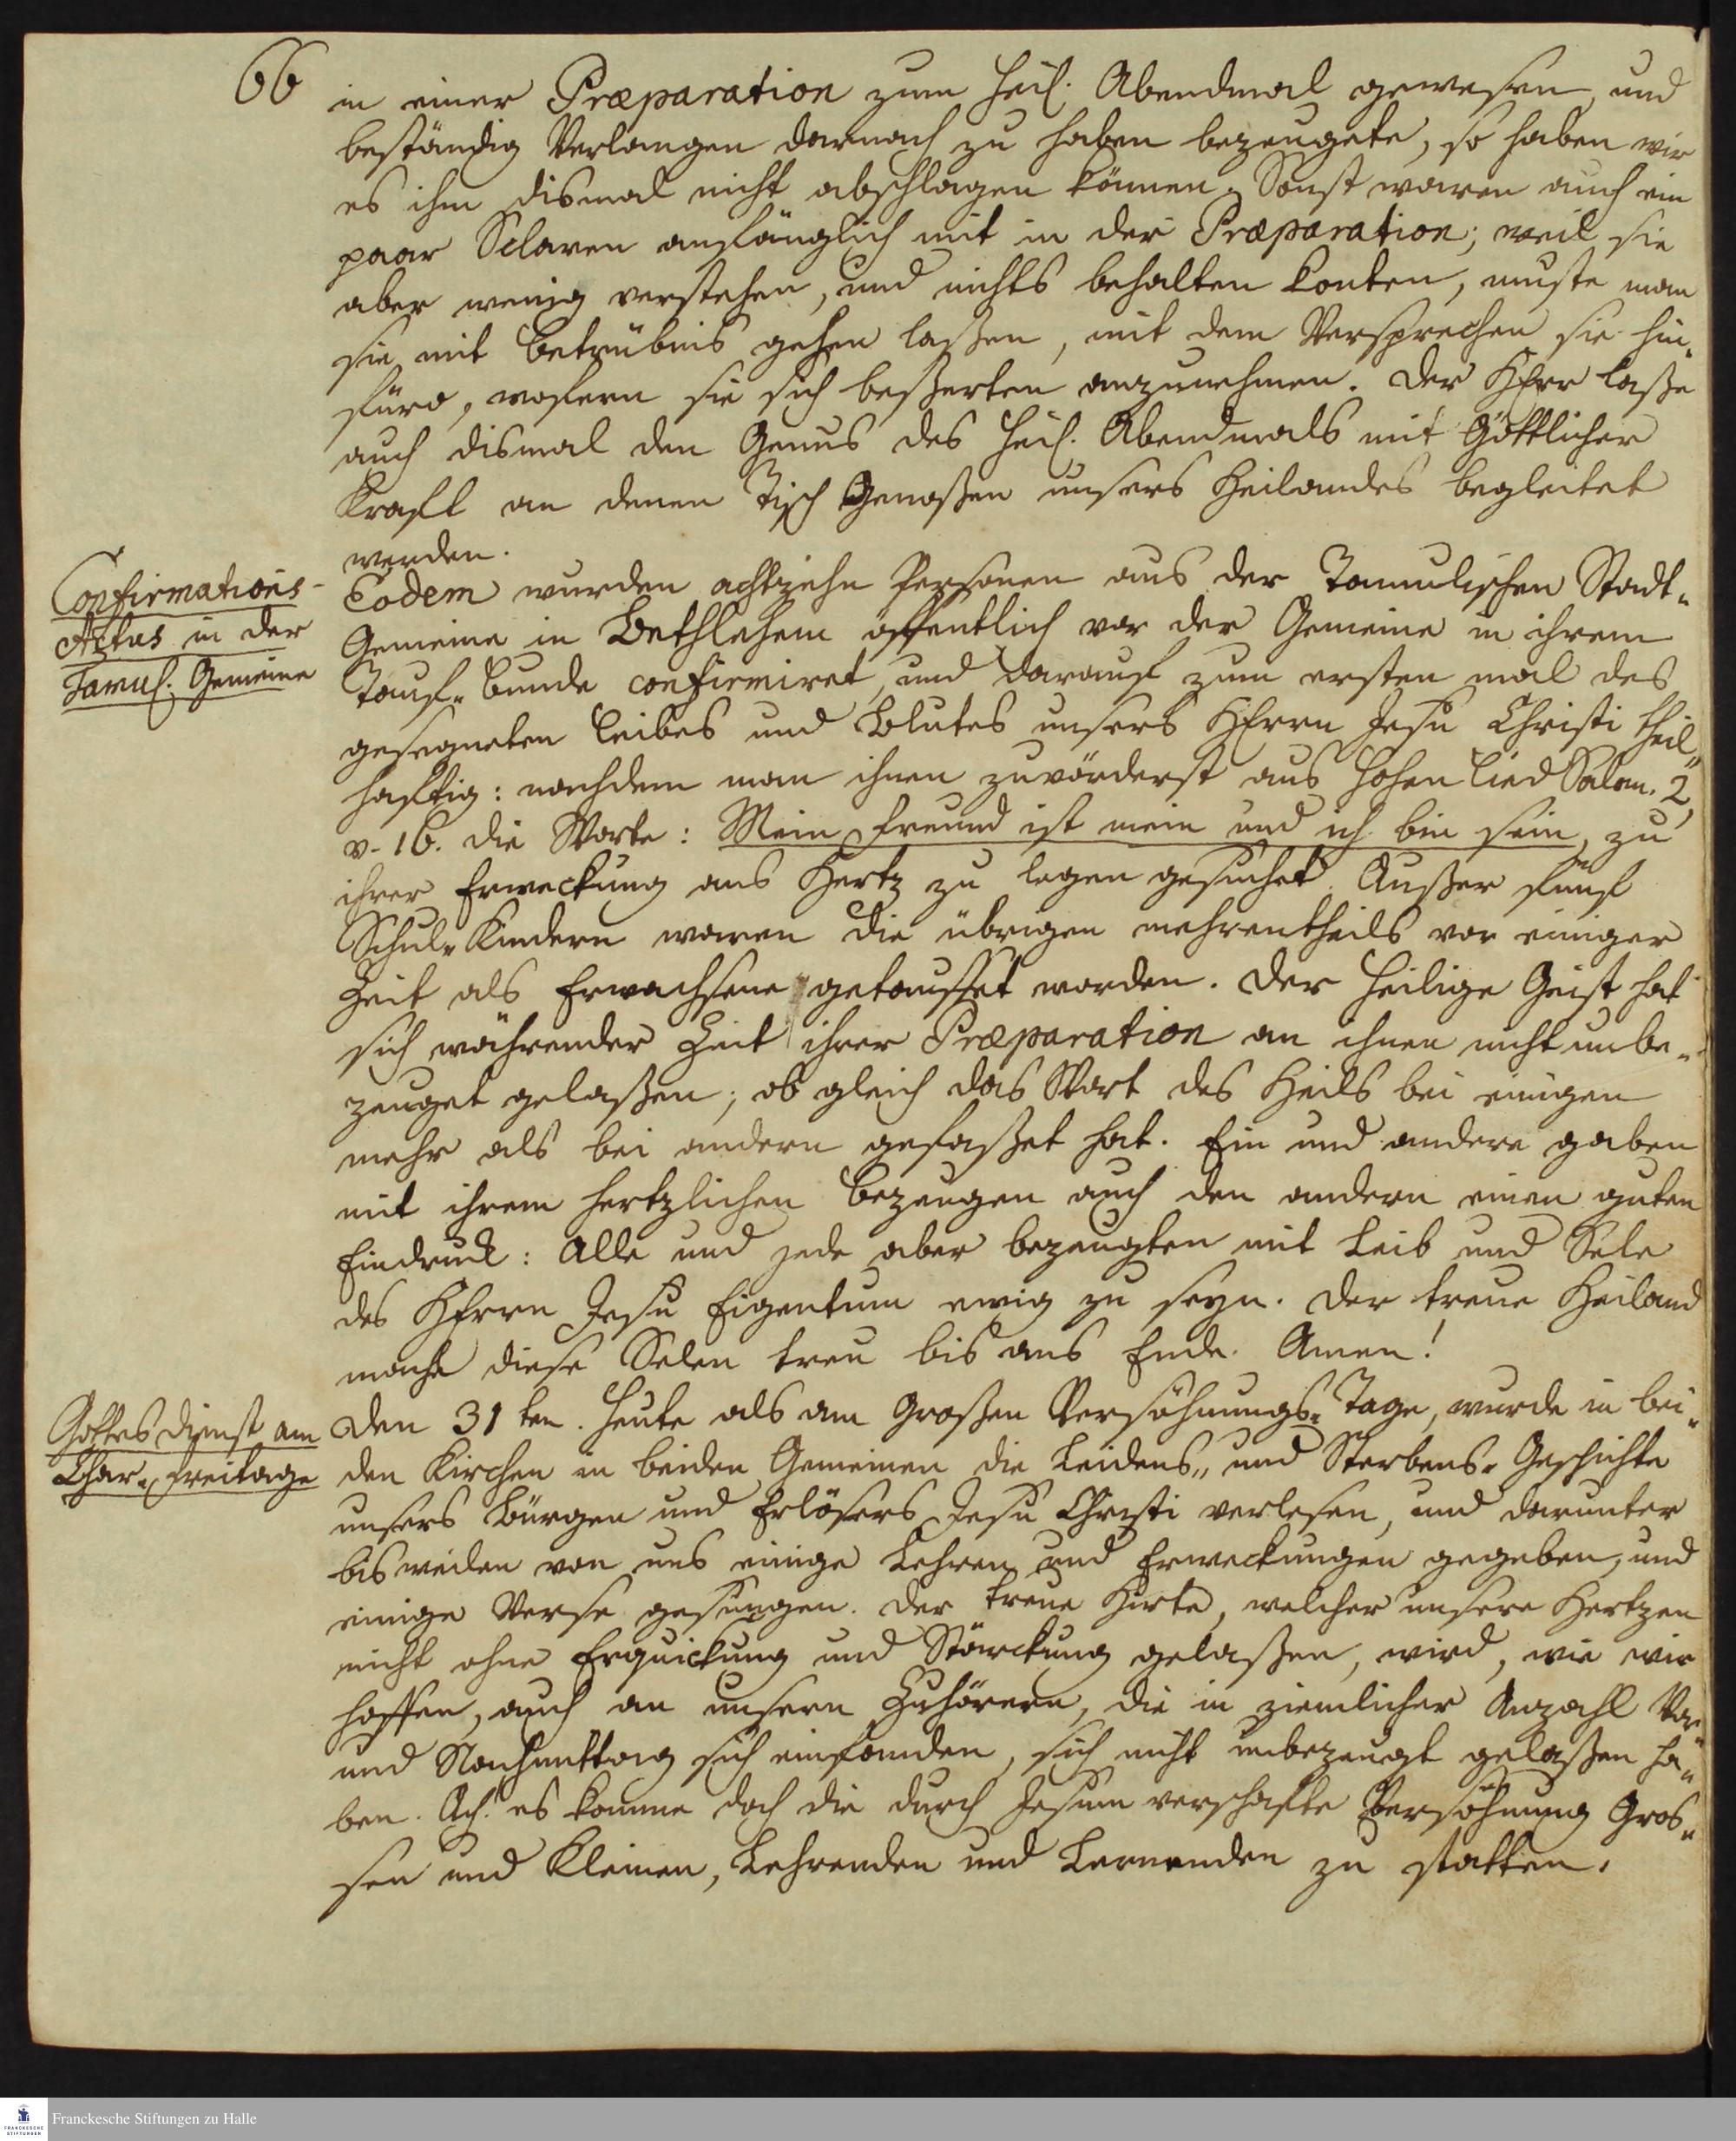 66
in einer Præparation zum heil. Abendmal gewesen, und
beständig Verlangen darnach zu haben bezeugete, so haben wir
es ihm dismal nicht abschlagen können. Sonst waren auch ein
paar Sclaven anfänglich mit in der Præparation; weil sie
aber wenig verstehen, und nichts behalten konten, muste man
sie mit Betrübnis gehen laßen, mit dem Versprechen sie hin„
füro, wofern sie sich beßerten anzunehmen. Der HErr laße
auch dismal den Genus des heil. Abendmals mit Göttlicher
Kraft an denen Tisch Genoßen unsers Heilandes begleitet
werden.
Confirmations-
Actus in der
Tamul. Gemeine
Eodem wurden achtzehn Personen aus der Tamulischen Stadt„
Gemeine in Bethlehem öffentlich vor der Gemeine in ihrem
Tauf„Bunde confirmiret, und darauf zum ersten mal des
gesegneten Leibes und Blutes unsers HErrn Jesu Christi theil„
haftig: nachdem man ihnen zuvörderst aus Hohen Lied Salom. 2,
v. 16. die Worte: Mein Freund ist mein und ich bin sein, zu
ihrer Erweckung ans Hertz zu legen gesuchet. Außer fünf
Schul„Kindern waren die übrigen mehrentheils vor einiger
Zeit als Erwachsene getauffet worden. Der Heilige Geist hat
sich währender Zeit ihrer Præparation an ihnen nicht unbe„
zeuget gelaßen; ob gleich das Wort des Heils bei einigen
mehr als bei andern gefaßet hat. Ein und andere gaben
mit ihrem hertzlichen Bezeugen auch den andern einen guten
Eindruck: Alle und jede aber bezeugten mit Leib und Sele
des HErrn Jesu Eigentum ewig zu seyn. Der treue Heiland
mache diese Selen treu bis ans Ende. Amen!
Gottesdienst am
Char„Freitage
Den 31ten. Heute als am Großen Versöhnungs„Tage, wurde in bei„
den Kirchen in beiden Gemeinen die Leidens„ und Sterbens„Geschichte
unsers Bürgen und Erlösers Jesu Christi verlesen, und darunter
bisweilen von uns einige Lehren und Erweckungen gegeben, und
einige Verse gesungen. Der treue Hirte, welcher unsere Hertzen
nicht ohne Erquickung und Stärckung gelaßen, wird, wie wir
hoffen, auch an unsern Zuhörern, die in ziemlicher Anzahl Vor„
und Nachmittag sich einfanden, sich nicht unbezeugt gelaßen ha„
ben. Ach! es komme doch die durch Jesum verschafte Versöhnung Gros„
sen und Kleinen, Lehrenden und Lernenden zu statten.
FRANCKESCHE
STIFTUNGEN
Franckesche Stiftungen zu Halle